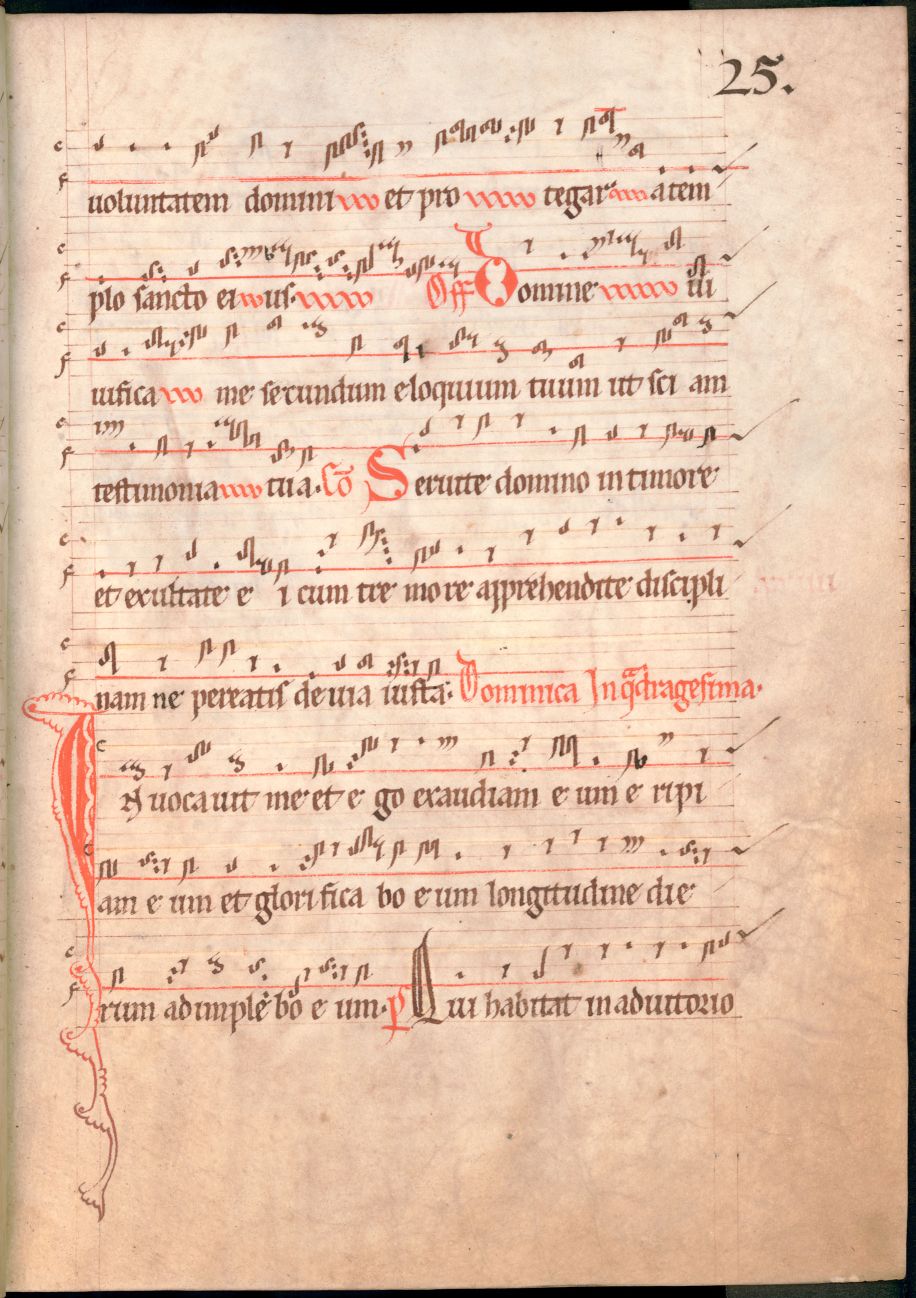 25.
uoluntatem domini et pro tegar a tem
plo sancto eius. Off Domine ui
uifica me secundum eloquium tuum ut sci am
testimonia tua. Co Seruite domino in timore
et exultate e i cum tre more apprehendite discipli
nam ne pereatis de uia iusta. Dominica In qdragesima.
Inuocauit me et e go exaudiam e um e ripi
am e um et glori fica bo e um longitudine die
rum adimple bo e um. P Qui habitat in adiutorio